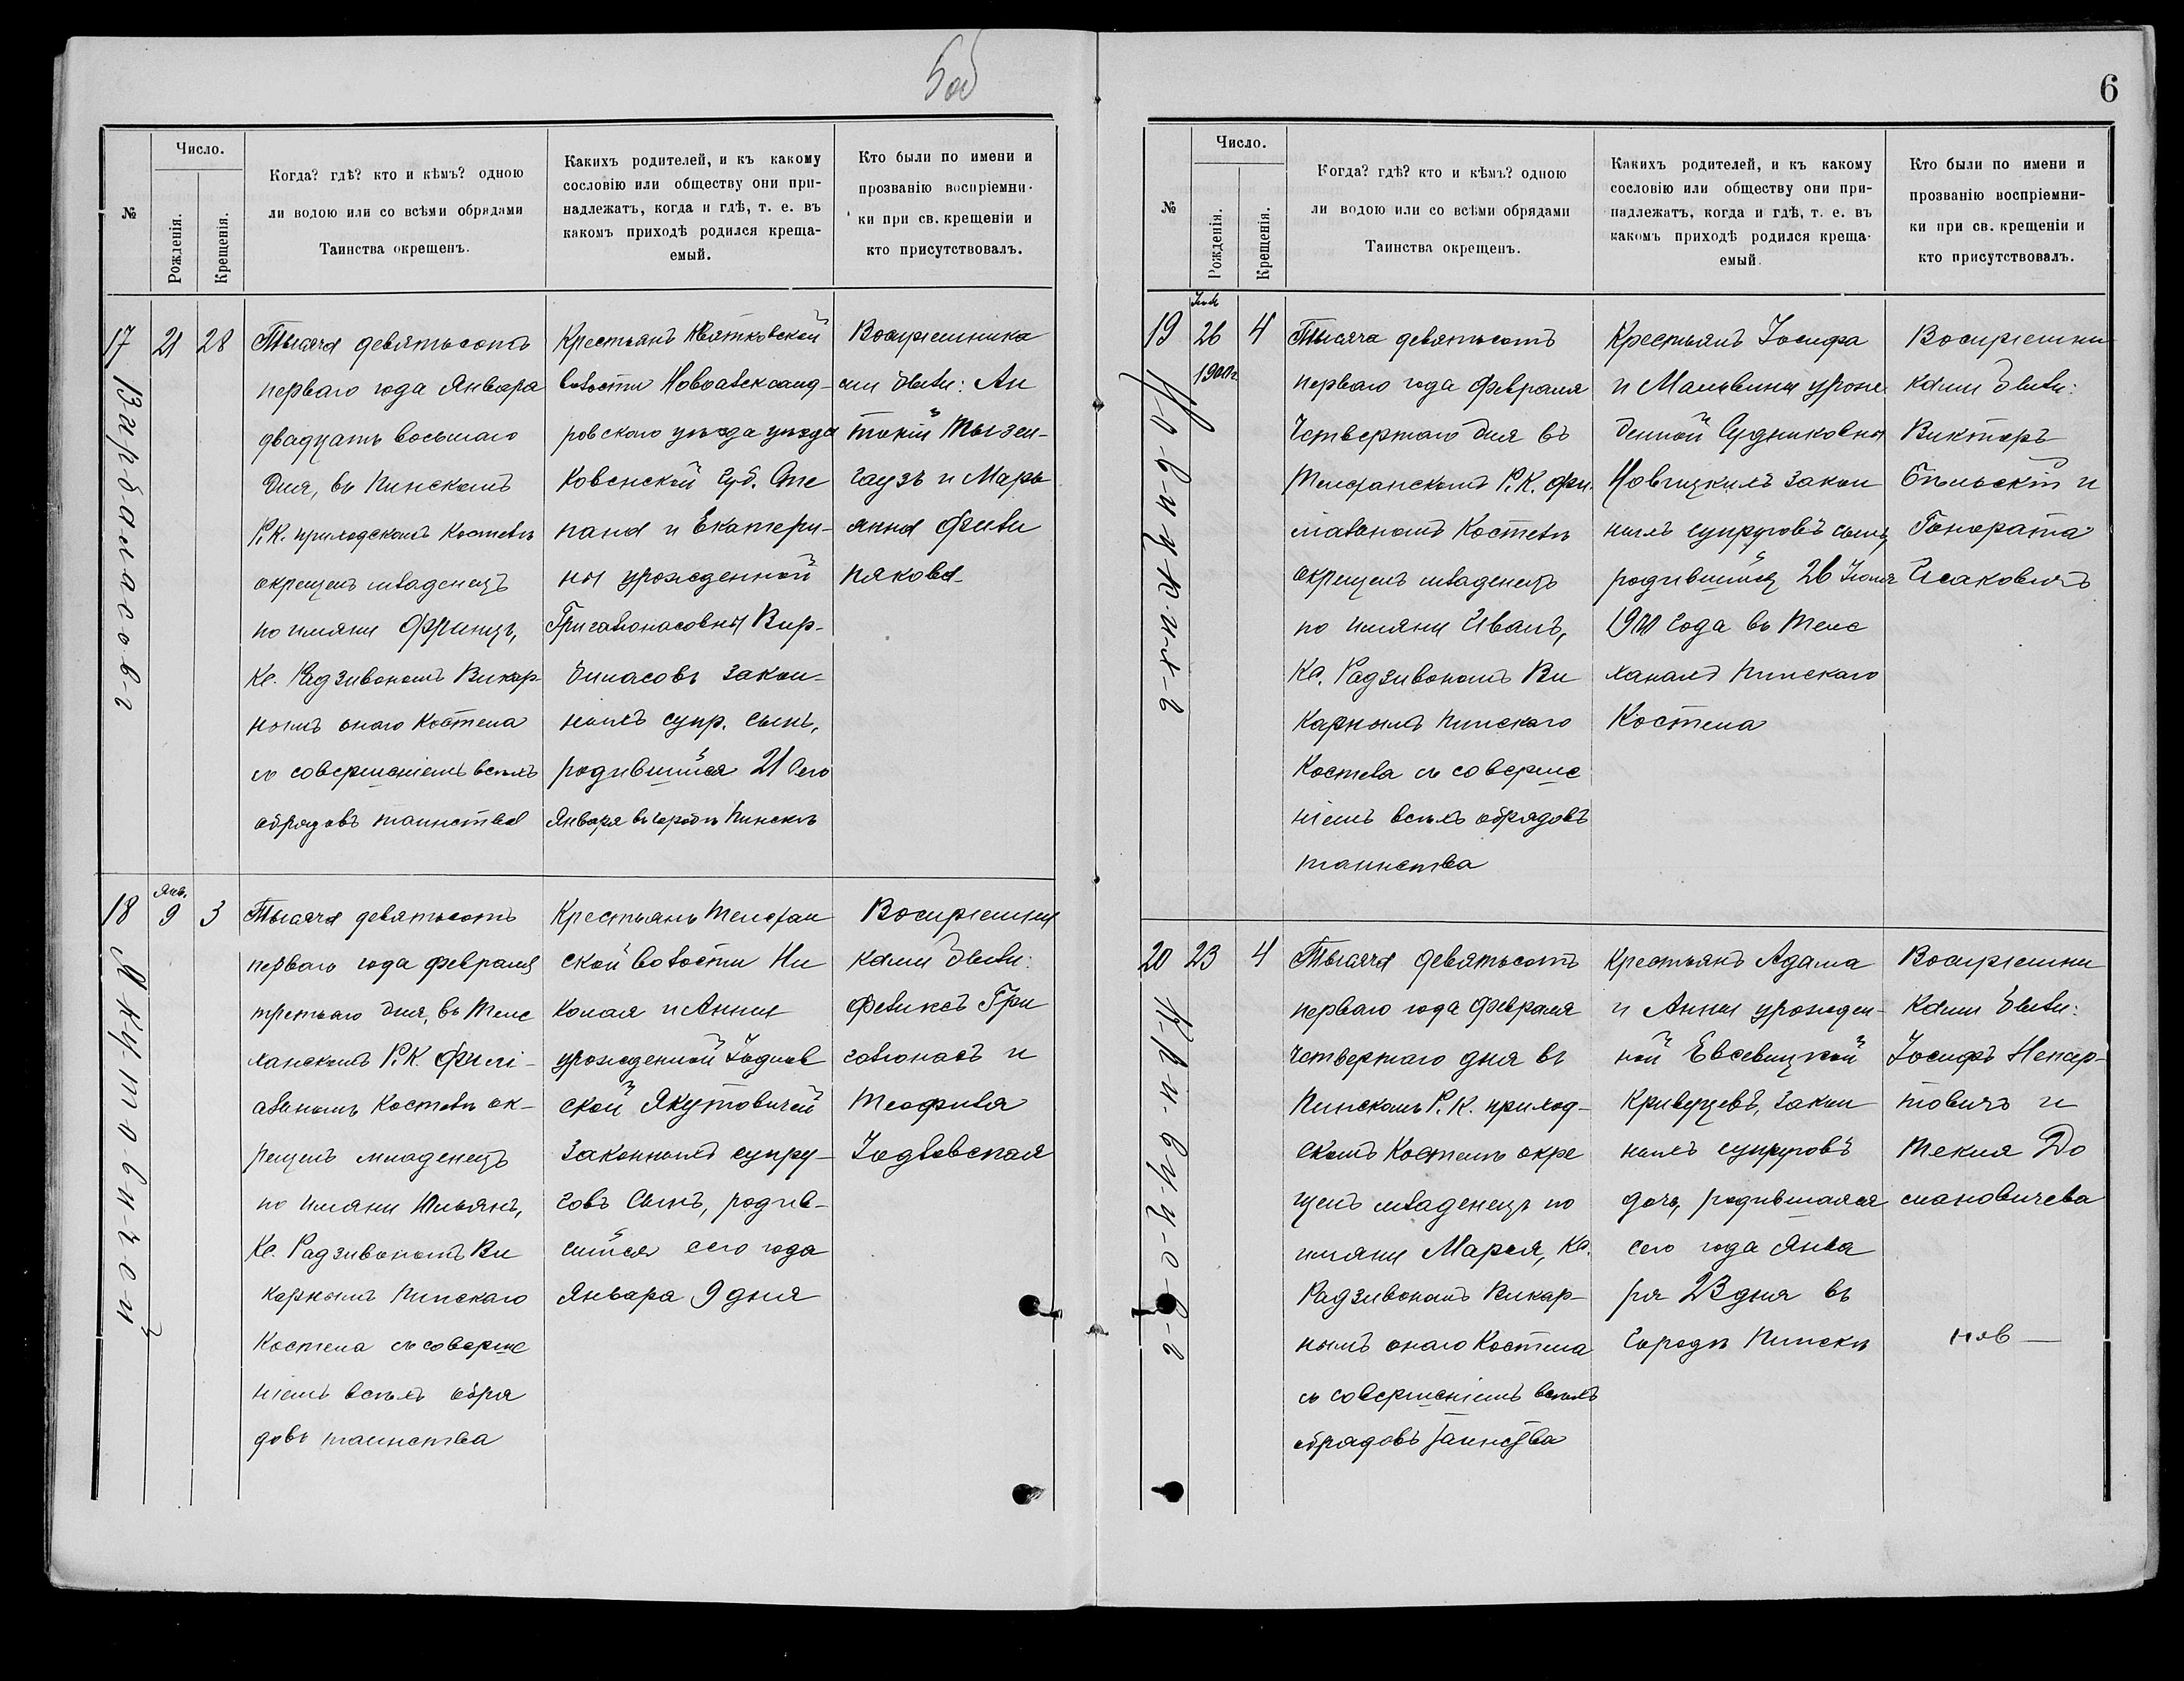 5об
№
Число.
Рожденія.
Крещенія.
Когда? гдѣ? кто и кѣмъ? одною
ли водою или со всѣми обрядами
Таинства окрещенъ.
Какихъ родителей, и къ какому
сословію или обществу они при-
надлежатъ, когда и гдѣ, т. е. въ
какомъ приходѣ родился креща-
емый.
Кто были по имени и
прозванію воспріемни-
ки при св. крещеніи и
кто присутствовалъ.
17
21
28
Тысяча девятьсотъ
перваго года Января
двадцать восьмаго
дня, въ Пинскомъ
Р.К. приходскомъ Костелѣ
окрещенъ младенецъ
по имяни Францъ,
Кс. Радзивономъ Викар-
нымъ онаго Костела
съ совершеніемъ всѣхъ
обрядовъ таинства
Крестьянъ
волости Новоалександ-
ровскаго уѣзда уѣзда
Ковенской Губ. Сте
пана и Екатери-
ны урожденной
Григалюнасовны Вир-
бицасовъ закон-
ныхъ супр. сынъ,
родившійся 21 сего
Января въ городѣ Пинскѣ
Воспріемника
ми были: Ан
тоній Мызен-
гаузъ и Марь
янна Фили
пякова
18
Янв.
9
3
Якутовичей
Тысяча девятьсотъ
перваго года февраля
третьяго дня, въ Теле
ханскомъ Р.К. филі-
альномъ Костелѣ ок-
рещенъ младенецъ
по имяни Юльянъ,
Кс. Радзивономъ Ви
карнымъ Пинскаго
Костела съ соверше
ніемъ всѣхъ обря
довъ таинства
Крестьянъ Телехан
ской волости Ни
колая и Анны
урожденной Іодлов
ской Якутовичей
законныхъ супру-
говъ сынъ, родив-
шійся сего года
Января 9 дня
Воспріемни
ками были:
Феликсъ Гри
голюнасъ и
Теофиля
Іодловская
6
№
Число.
Рожденія.
Крещенія.
Когда? гдѣ? кто и кѣмъ? одною
ли водою или со всѣми обрядами
Таинства окрещенъ.
Какихъ родителей, и къ какому
сословію или обществу они при-
надлежатъ, когда и гдѣ, т. е. въ
какомъ приходѣ родился креща-
емый.
Кто были по имени и
прозванію воспріемни-
ки при св. крещеніи и
кто присутствовалъ.
19
26
1900 г.
4
Новицкихъ
Тысяча девятьсотъ
перваго года февраля
Четвертаго дня въ
Телеханскомъ Р.К. фи-
ліальномъ Костелѣ
окрещенъ младенецъ
по имяни Иванъ,
Кс. Радзивономъ Ви
карнымъ Пинскаго
Костела съ соверше
ніемъ всѣхъ обрядовъ
таинства
Крестьянъ Іосифа
и Мальвины урож
денной Судниковны
Новицкихъ закон
ныхъ супруговъ сынъ,
родившійся 26 Іюля
1900 года въ Теле
ханахъ Пинскаго
Костела
Воспріемни
ками были:
Викторъ
Бѣльскій и
Гонората
Исаковичъ
20
23
4
Кривецовъ
Тысяча девятьсотъ
перваго года февраля
четвертаго дня въ
Пинскомъ Р.К. приход-
скомъ Костелѣ окре
щенъ младенецъ по
имяни Марія, Кс.
Радзивономъ Викар-
нымъ онаго Костела
съ совершеніемъ всѣхъ
обрядовъ таинства
Крестьянъ Адама
и Анны урожден-
ной Евсевицкой
Кривецевъ, закон
ныхъ супруговъ
дочь, родившаяся
сего года Янва
ря 23 дня въ
Городѣ Пинскѣ
Воспріемни
ками были:
Іосифъ Непар-
товичъ и
Текля До
мановичева